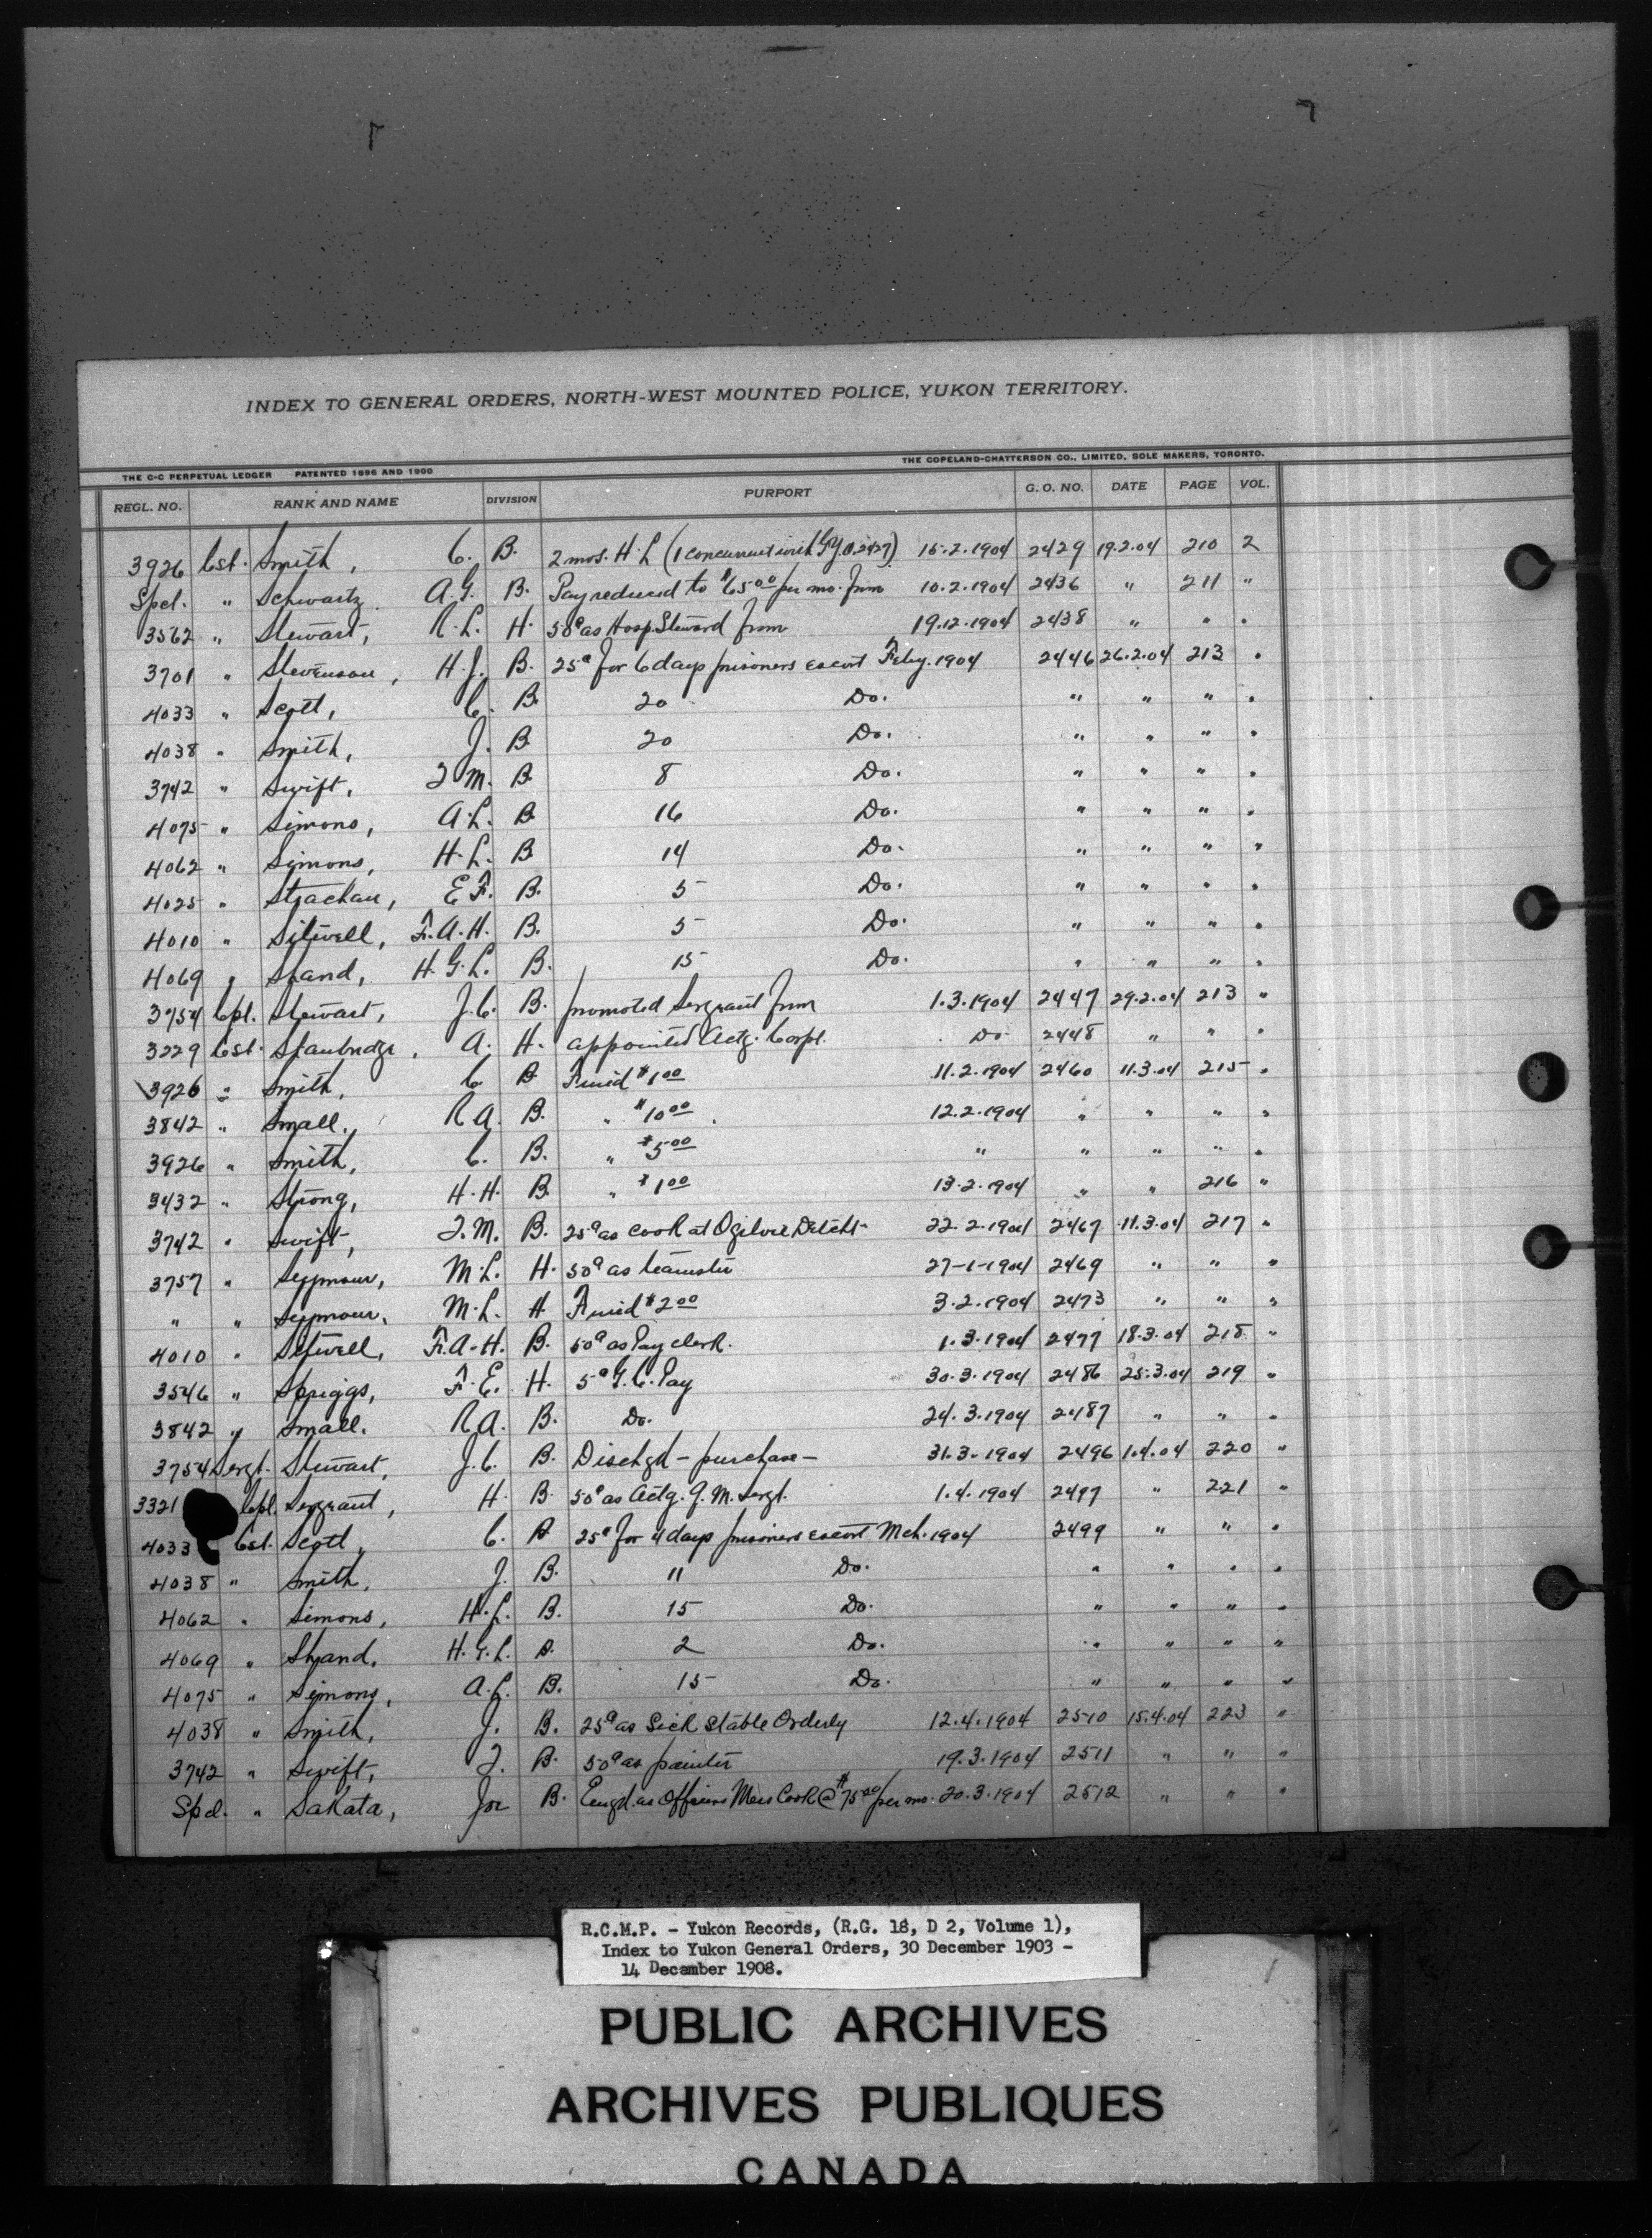 INDEX TO GENERAL ORDERS, NORTH-WEST MOUNTED POLICE, YUKON TERRITORY.
THE C-C PERPETUAL LEDGER PATENTED 1896 AND 1900 THE COPELAND-CHATTERSON CO., LIMITED, SOLE MAKERS, TORONTO.
REGL. NO. RANK AND NAME DIVISION PURPORT G. O. NO. DATE PAGE VOL.
3926 Cst. Smith, C. B. 2 mos. H. L (1 concurrent with 2427) 15.2.1904 2429 19.2.04 210 2
Spcl. " Schwartz A.G. B. Pay reduced to $65.00 per mo. from 10.2.1904 2436 " 211 "
3562 " Stewart, R.L. H. 50¢ as Hosp. Steward from 19.12.1904 2438 " " "
3701 " Stevenson, H.J. B. 25¢ for 6 days prisoners escort Feby. 1904 2446 26.2.04 213 "
4033 " Scott, C. B. 20 Do. " " " "
4038 " Smith, J. B. 20 Do. " " " "
3742 " Swift, T.M. B. 8 Do. " " " "
4075 " Simons, A.L. B. 16 Do. " " " "
4062 " Simons, H.L. B. 14 Do. " " " "
4025 " Strachan, E.F. B. 5 Do. " " " "
4010 " Sitwell, F.A.H. B. 5 Do. " " " "
4069 " Shand, H.G.L. B. 15 Do. " " " "
3754 Cpl. Stewart, J.C. B. promoted Sergeant from 1.3.1904 2447 29.2.04 213 "
3229 Cst. Stanbridge, A. H. appointed Actg. Corpl. Do 2448 " " "
3926 " Smith, C. B. Fined $1.00 11.2.1904 2460 11.3.04 215 "
3842 " Small, R.A. B. " $10.00 12.2.1904 " " " "
3926 " Smith, C. B. " $5.00 " " " " "
3432 " Strong, H.H. B. " $1.00 13.2.1904 " " 216 "
3742 " Swift, T.M. B. 25¢ as cook at Ogilvie Detcht 22.2.1904 2467 11.3.04 217 "
3757 " Seymour, M.L. H. 50¢ as teamster 27-1-1904 2469 " " "
" " Seymour, M.L. H Fined $2.00 3.2.1904 2473 " " "
4010 " Sitwell, F.A.H. B. 50¢ as Pay clerk. 1.3.1904 2477 18.3.04 218 "
3546 " Spriggs, F.E. H. 5¢ G.C. Pay 30.3.1904 2486 25.3.04 219 "
3842 " Small, R.A. B. Do. 24.3.1904 2487 " " "
3754 Sergt. Stewart, J.C. B. Dischgd - purchase - 31.3.1904 2496 1.4.04 220 "
3321 Cpl. Sergeant, H. B. 50¢ as Actg. Q.M. Sergt. 1.4.1904 2497 " 221 "
4033 Cst. Scott, C. B 25¢ for 4 days prisoners escort Mch. 1904 2499 " " "
4038 " Smith, J. B. 11 Do. " " " "
4062 " Simons, H.L. B. 15 Do. " " " "
4069 " Shand, H.G.L. B. 2 Do. " " " "
4075 " Simons, A.L. B. 15 Do. " " " "
4038 " Smith, J. B. 25¢ as Sick Stable Orderly 12.4.1904 2510 15.4.04 223 "
3742 " Swift, T. B. 50¢ as painter 19.3.1904 2511 " " "
Spcl. " Sakata, Joe B. Engd. as Officers Mess Cook @ $75.00 per mo. 20.3.1904 2512 " " "
R.C.M.P. - Yukon Records, (R.G. 18, D 2, Volume 1),
Index to Yukon General Orders, 30 December 1903 -
14 December 1908.
PUBLIC ARCHIVES
ARCHIVES PUBLIQUES
CANADA